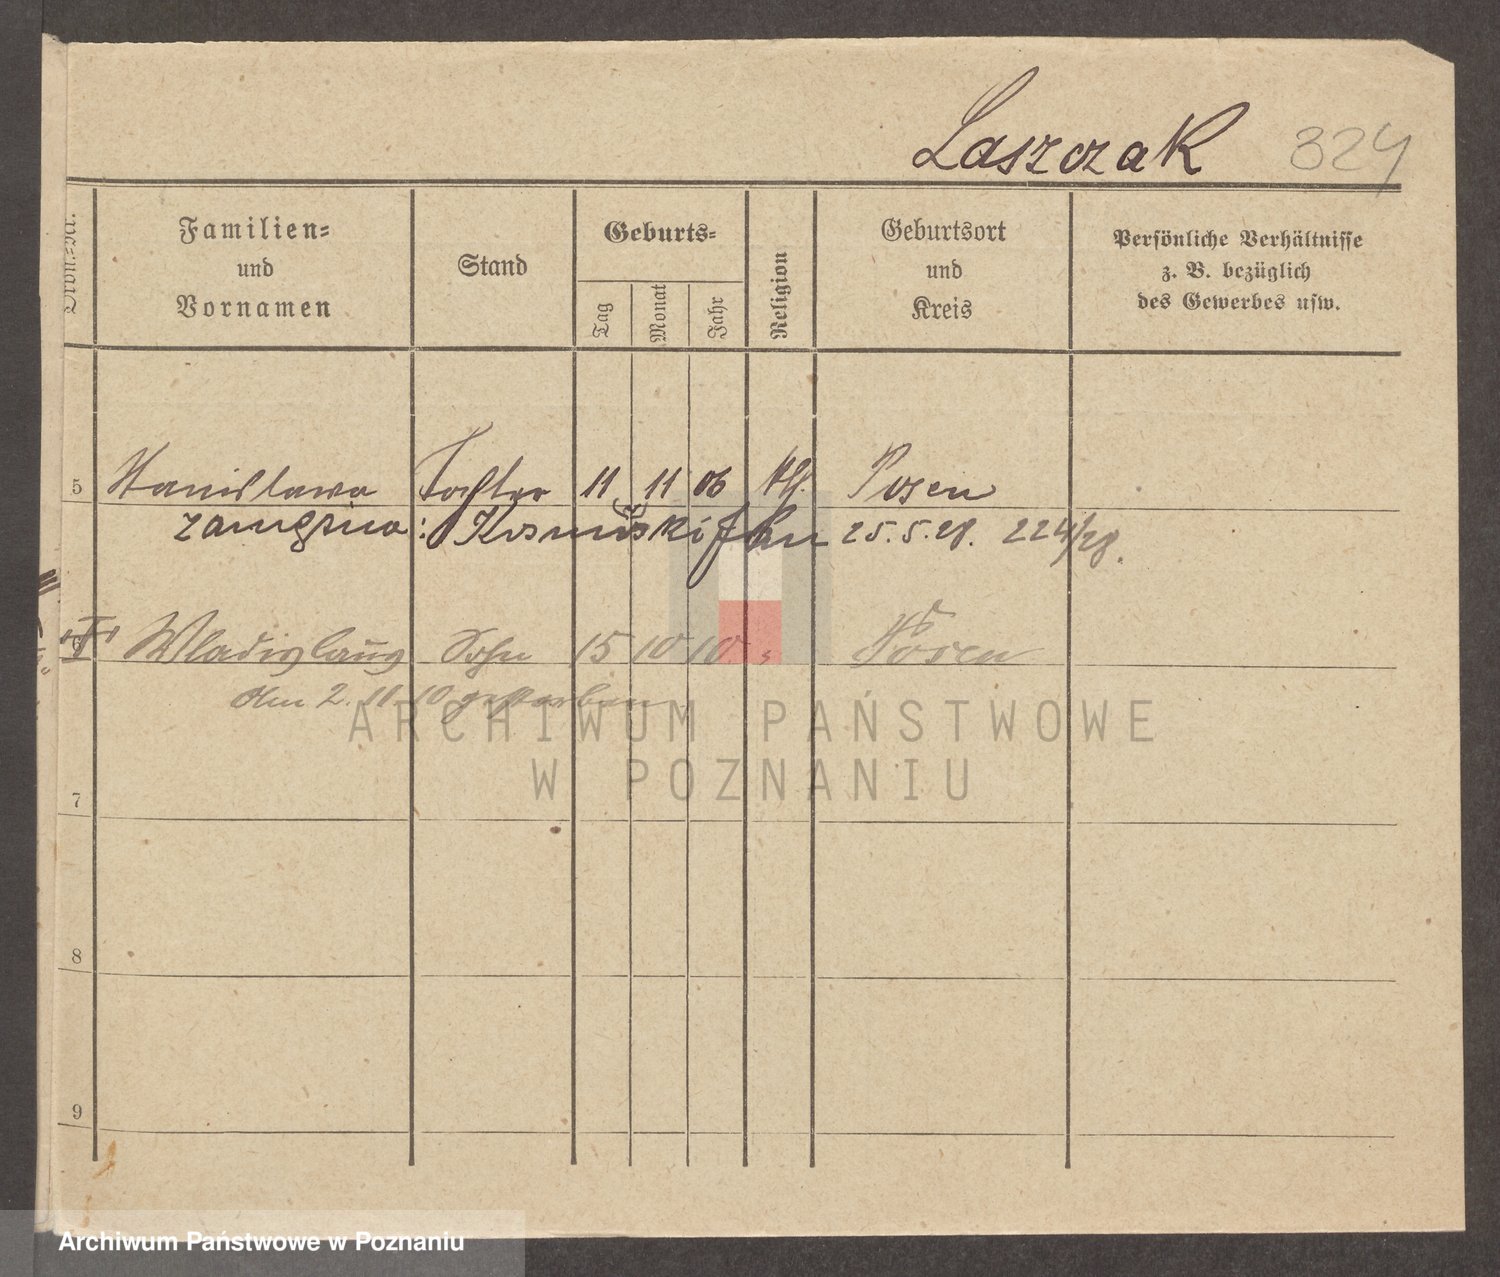 Laszczak 324
Ordn.-Nr.
Familien-
und
Vornamen
Stand
Geburts-
Tag
Monat
Jahr
Religion
Geburtsort
und
Kreis
Persönliche Verhältnisse
z. B. bezüglich
des Gewerbes usw.
5 Stanislawa Tochter 11 11 06 kth. Posen
zamężna: Kosmoski Jan 25.5.28. 224/28.
6 Wladislaus Sohn 15 10 10 " Posen
den 2.11.10 gestorben
7
8
9
ARCHIWUM PAŃSTWOWE
W POZNANIU
Archiwum Państwowe w Poznaniu